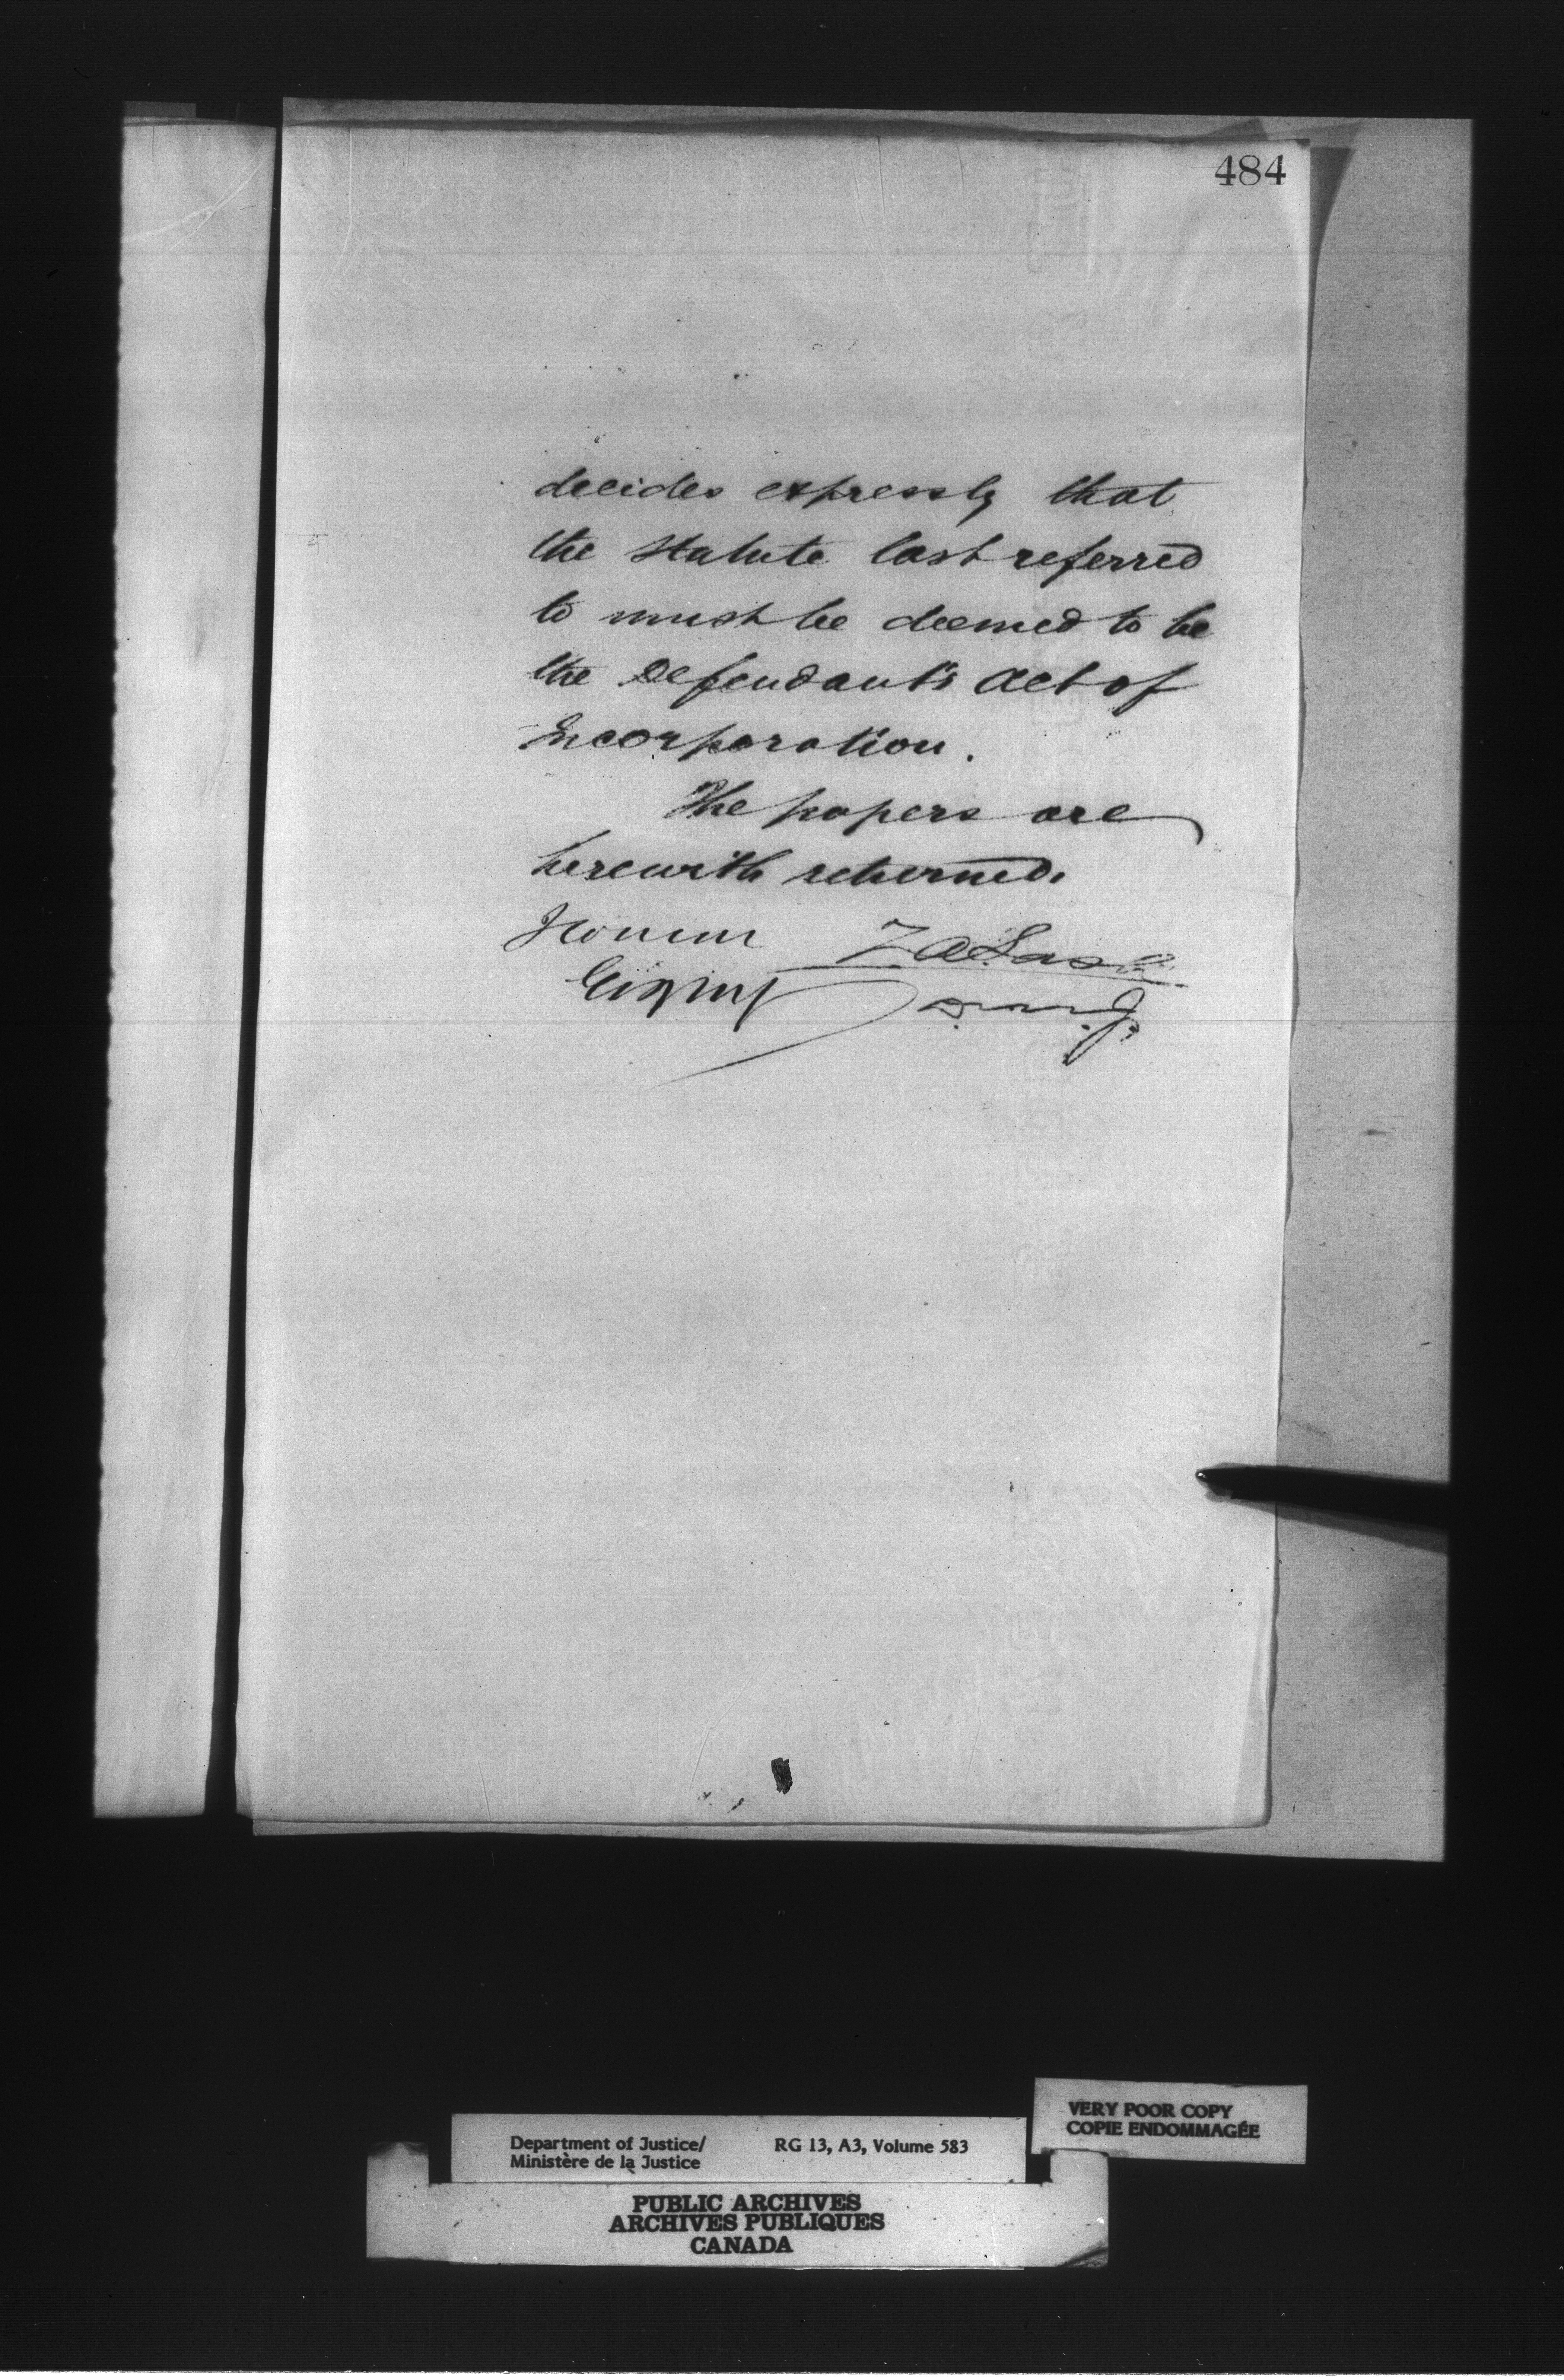 484
decides expressly that
the statute last referred
to must be deemed to be
the Defendant's Act of
Incorporation.
The papers are
herewith returned.
Z A Lash
D. M. J.
VERY POOR COPY
COPIE ENDOMMAGÉE
Department of Justice/ RG 13, A3, Volume 583
Ministère de la Justice
PUBLIC ARCHIVES
ARCHIVES PUBLIQUES
CANADA